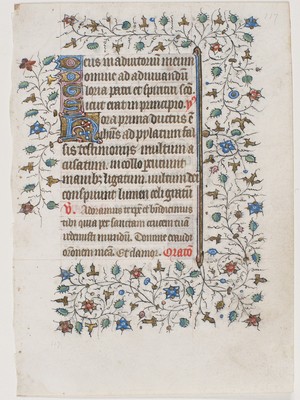 Deus in adiutorium meum
Domine ad adiuvandum
Gloria patri et spiritui sco
Sicut erat in principio. ps
Hora prima ductus est
Ihus ad pylatum fal
sis testimoniis multum a
cusatum, in collo percutiunt
manibus ligatum, vultum dei
conspuunt lumen celi gratum
V. Adoramus te xpe et bndicimus
tibi quia per sanctam crucem tuam
redemisti mundum. Domine exaudi
oronem mea. Et clamor. Oratio